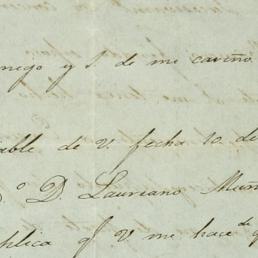 migo y S. de mi cariño
able de V. fecha 10 de
D. Laureano Muñ
plica qe V. me hace de q